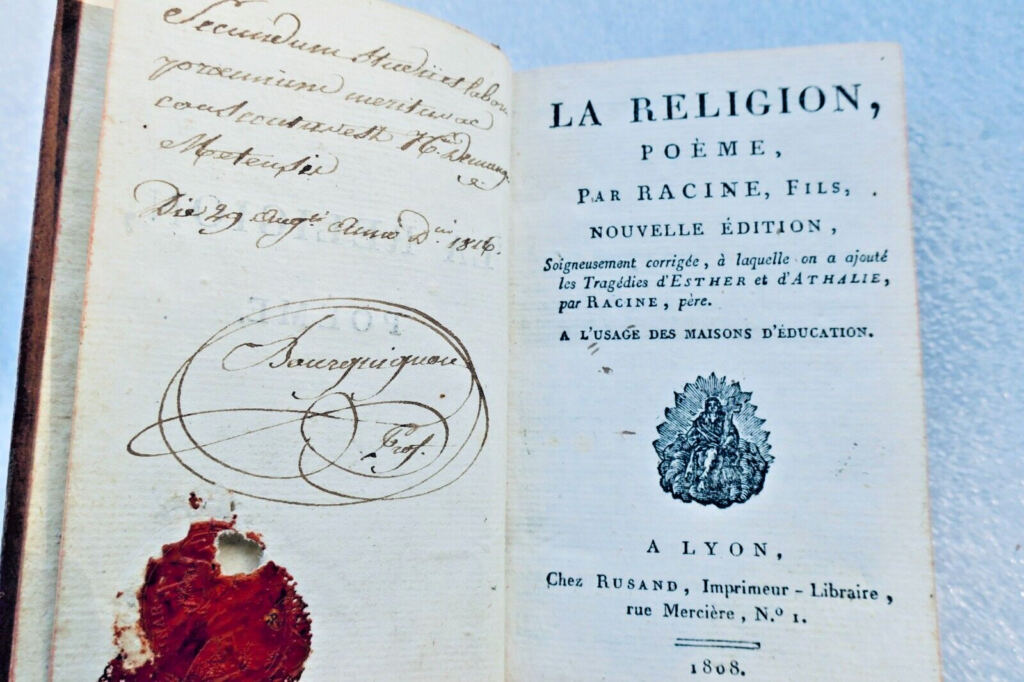 Secundum studii et labor
proemium meritus ac
consecutus est H. Demang
e
Metensis
Die 29 Augti anno Dni 1816.
Bourguignon
Prof.
LA RELIGION,
POÈME,
PAR RACINE, FILS,
NOUVELLE ÉDITION,
Soigneusement corrigée, à laquelle on a ajouté
les Tragédies d'ESTHER et d'ATHALIE,
par RACINE, père.
A L'USAGE DES MAISONS D'ÉDUCATION.
A LYON,
Chez RUSAND, Imprimeur - Libraire,
rue Mercière, N.º 1.
1808.